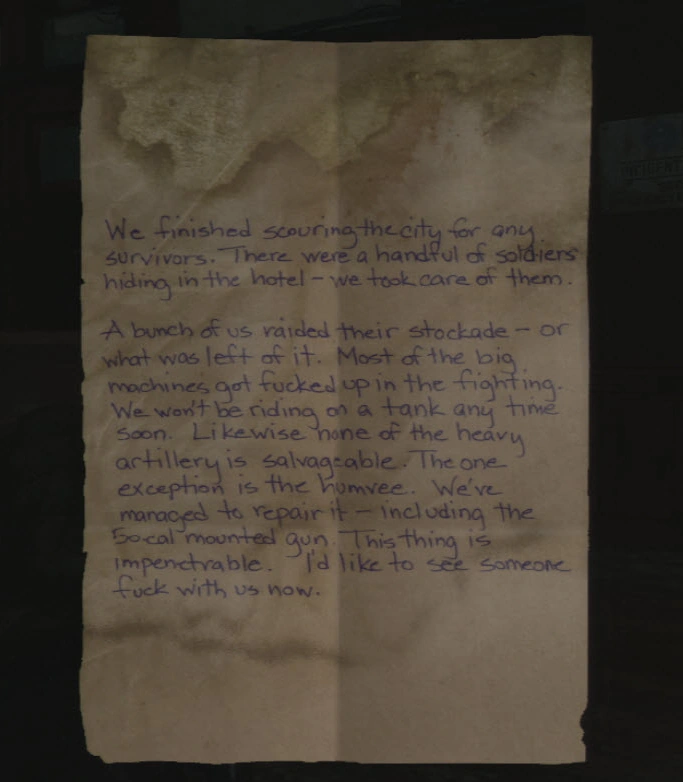 We finished scouring the city for any
survivors. There were a handful of soldiers
hiding in the hotel - we took care of them.
A bunch of us raided their stockade - or
what was left of it. Most of the big
machines got fucked up in the fighting.
We won't be riding on a tank any time
soon. Likewise none of the heavy
artillery is salvageable. The one
exception is the humvee. We've
managed to repair it - including the
50 cal mounted gun. This thing is
impenetrable. I'd like to see someone
fuck with us now.